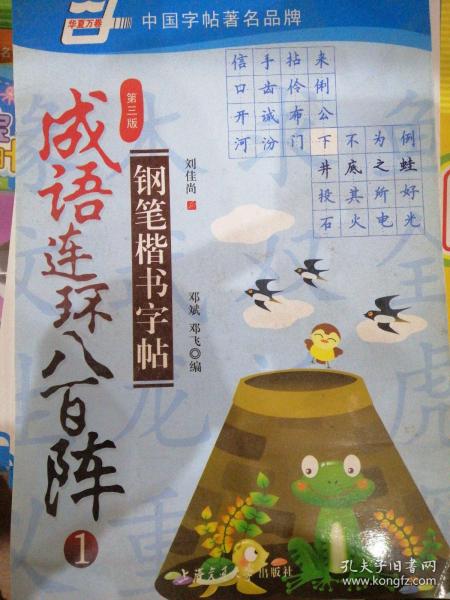 华夏万卷
中国字帖著名品牌
信手拈来
口齿伶俐
开诚布公
河汾门下不为例
井底之蛙
投其所好
石火电光
第三版
成语连环八百阵
1
钢笔楷书字帖
刘佳尚
邓斌 邓飞 编
上海交通大学出版社
孔夫子旧书网
www.kongfz.com